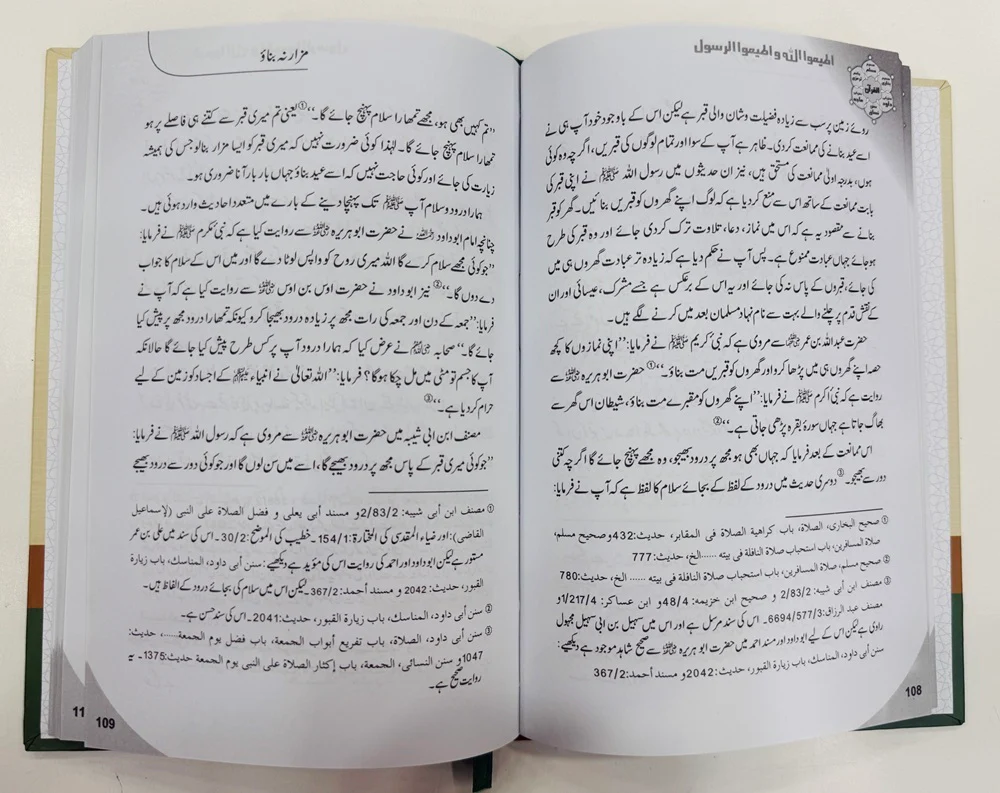 اطیعوا اللہ و اطیعوا الرسول
القرآن
روئے زمین پر سب سے زیادہ فضیلت وشان والی قبر ہے لیکن اس کے باوجود خود آپ ہی نے
اسے عید بنانے کی ممانعت کر دی۔ ظاہر ہے آپ کے سوا اور تمام لوگوں کی قبریں، اگرچہ وہ کوئی
ہوں، بدرجہ اولیٰ ممانعت کی مستحق ہیں، نیز ان حدیثوں میں رسول اللہ ﷺ نے اپنی قبر کی
بابت ممانعت کے ساتھ اس سے منع کر دیا ہے کہ لوگ اپنے گھروں کو قبریں بنائیں۔ گھر کو قبر
بنانے سے مقصود یہ ہے کہ اس میں نماز، دعا، تلاوت ترک کر دی جائے اور وہ قبر کی طرح
ہو جائے جہاں عبادت ممنوع ہے۔ پس آپ نے حکم دیا ہے کہ زیادہ تر عبادت گھروں ہی میں
کی جائے، قبروں کے پاس نہ کی جائے اور یہ اس کے برعکس ہے جسے مشرک، عیسائی اور ان
کے نقش قدم پر چلنے والے بہت سے نام نہاد مسلمان بعد میں کرنے لگے ہیں۔
حضرت عبداللہ بن عمر رضی اللہ عنہما سے مروی ہے کہ نبی کریم ﷺ نے فرمایا: ”اپنی نمازوں کا کچھ
حصہ اپنے گھروں ہی میں پڑھا کرو اور گھروں کو قبریں مت بناؤ۔“① حضرت ابو ہریرہ رضی اللہ عنہ سے
روایت ہے کہ نبی اکرم ﷺ نے فرمایا: ”اپنے گھروں کو مقبرے مت بناؤ، شیطان اس گھر سے
بھاگ جاتا ہے جہاں سورۂ بقرہ پڑھی جاتی ہے۔“②
اس ممانعت کے بعد فرمایا کہ جہاں بھی ہو مجھ پر درود بھیجو، وہ مجھے پہنچ جائے گا اگرچہ کتنی
دور سے بھیجو۔③ دوسری حدیث میں درود کے لفظ کے بجائے سلام کا لفظ ہے کہ آپ نے فرمایا:
① صحیح البخاری، الصلاة، باب کراهیة الصلاة فی المقابر، حدیث:432 و صحیح مسلم،
صلاة المسافرین، باب استحباب صلاة النافلة فی بیته ......الخ، حدیث:777
② صحیح مسلم، صلاة المسافرین، باب استحباب صلاة النافلة فی بیته ...... الخ، حدیث:780
③ مصنف ابن أبی شیبه: 2/83/2 و صحیح ابن خزیمه: 48/4 و ابن عساکر: 1/217/4 و
مصنف عبد الرزاق:6694/577/3۔ اس کی سند مرسل ہے اور اس میں سہیل بن ابی سہیل مجہول
راوی ہے لیکن اس کے لیے ابو داود اور مسند احمد میں حضرت ابو ہریرہ رضی اللہ عنہ سے صحیح شاہد موجود ہے دیکھیے:
سنن أبی داود، المناسك، باب زیارة القبور، حدیث:2042 و مسند أحمد:367/2
108
مزار نہ بناؤ
”تم کہیں بھی ہو، مجھے تمھارا سلام پہنچ جائے گا۔“① یعنی تم میری قبر سے کتنے ہی فاصلے پر ہو
تمھارا سلام پہنچ جائے گا۔ لہٰذا کوئی ضرورت نہیں کہ میری قبر کو ایسا مزار بنا لو جس کی ہمیشہ
زیارت کی جائے اور کوئی حاجت نہیں کہ اسے عید بناؤ جہاں بار بار آنا ضروری ہو۔
ہمارا درود و سلام آپ ﷺ تک پہنچا دینے کے بارے میں متعدد احادیث وارد ہوئی ہیں۔
چنانچہ امام ابو داود رحمہ اللہ نے حضرت ابو ہریرہ رضی اللہ عنہ سے روایت کیا ہے کہ نبی مکرم ﷺ نے فرمایا:
”جو کوئی مجھے سلام کرے گا اللہ میری روح کو واپس لوٹا دے گا اور میں اس کے سلام کا جواب
دے دوں گا۔“② نیز ابو داود نے حضرت اوس بن اوس رضی اللہ عنہ سے روایت کیا ہے کہ آپ نے
فرمایا: ”جمعہ کے دن اور جمعہ کی رات مجھ پر زیادہ درود بھیجا کرو کیونکہ تمھارا درود مجھ پر پیش کیا
جائے گا۔“ صحابہ رضی اللہ عنہم نے عرض کیا کہ ہمارا درود آپ پر کس طرح پیش کیا جائے گا حالانکہ
آپ کا جسم تو مٹی میں مل چکا ہوگا؟ فرمایا: ”اللہ تعالیٰ نے انبیاء علیہم السلام کے اجساد کو زمین کے لیے
حرام کر دیا ہے۔“③
مصنف ابن ابی شیبہ میں حضرت ابو ہریرہ رضی اللہ عنہ سے مروی ہے کہ رسول اللہ ﷺ نے فرمایا:
”جو کوئی میری قبر کے پاس مجھ پر درود بھیجے گا، اسے میں سن لوں گا اور جو کوئی دور سے درود بھیجے
① مصنف ابن أبی شیبه: 2/83/2 و مسند أبی یعلی و فضل الصلاة علی النبی (لإسماعیل
القاضی): اور ضیاء المقدسی کی المختارة:154/1۔ خطیب کی الموضح:30/2۔ اس کی سند میں علی بن عمر
مستور ہے لیکن ابو داود اور احمد کی روایت اس کی مؤید ہے دیکھیے: سنن أبی داود، المناسك، باب زیارة
القبور، حدیث: 2042 و مسند أحمد:367/2۔ لیکن اس میں سلام کی بجائے درود کے الفاظ ہیں۔
② سنن أبی داود، المناسك، باب زیارة القبور، حدیث:2041۔ اس کی سند حسن ہے۔
③ سنن أبی داود، الصلاة، باب تفریع أبواب الجمعة، باب فضل یوم الجمعة.....، حدیث:
1047 و سنن النسائی، الجمعة، باب إکثار الصلاة علی النبی یوم الجمعة حدیث:1375۔ یہ
روایت صحیح ہے۔
109
11